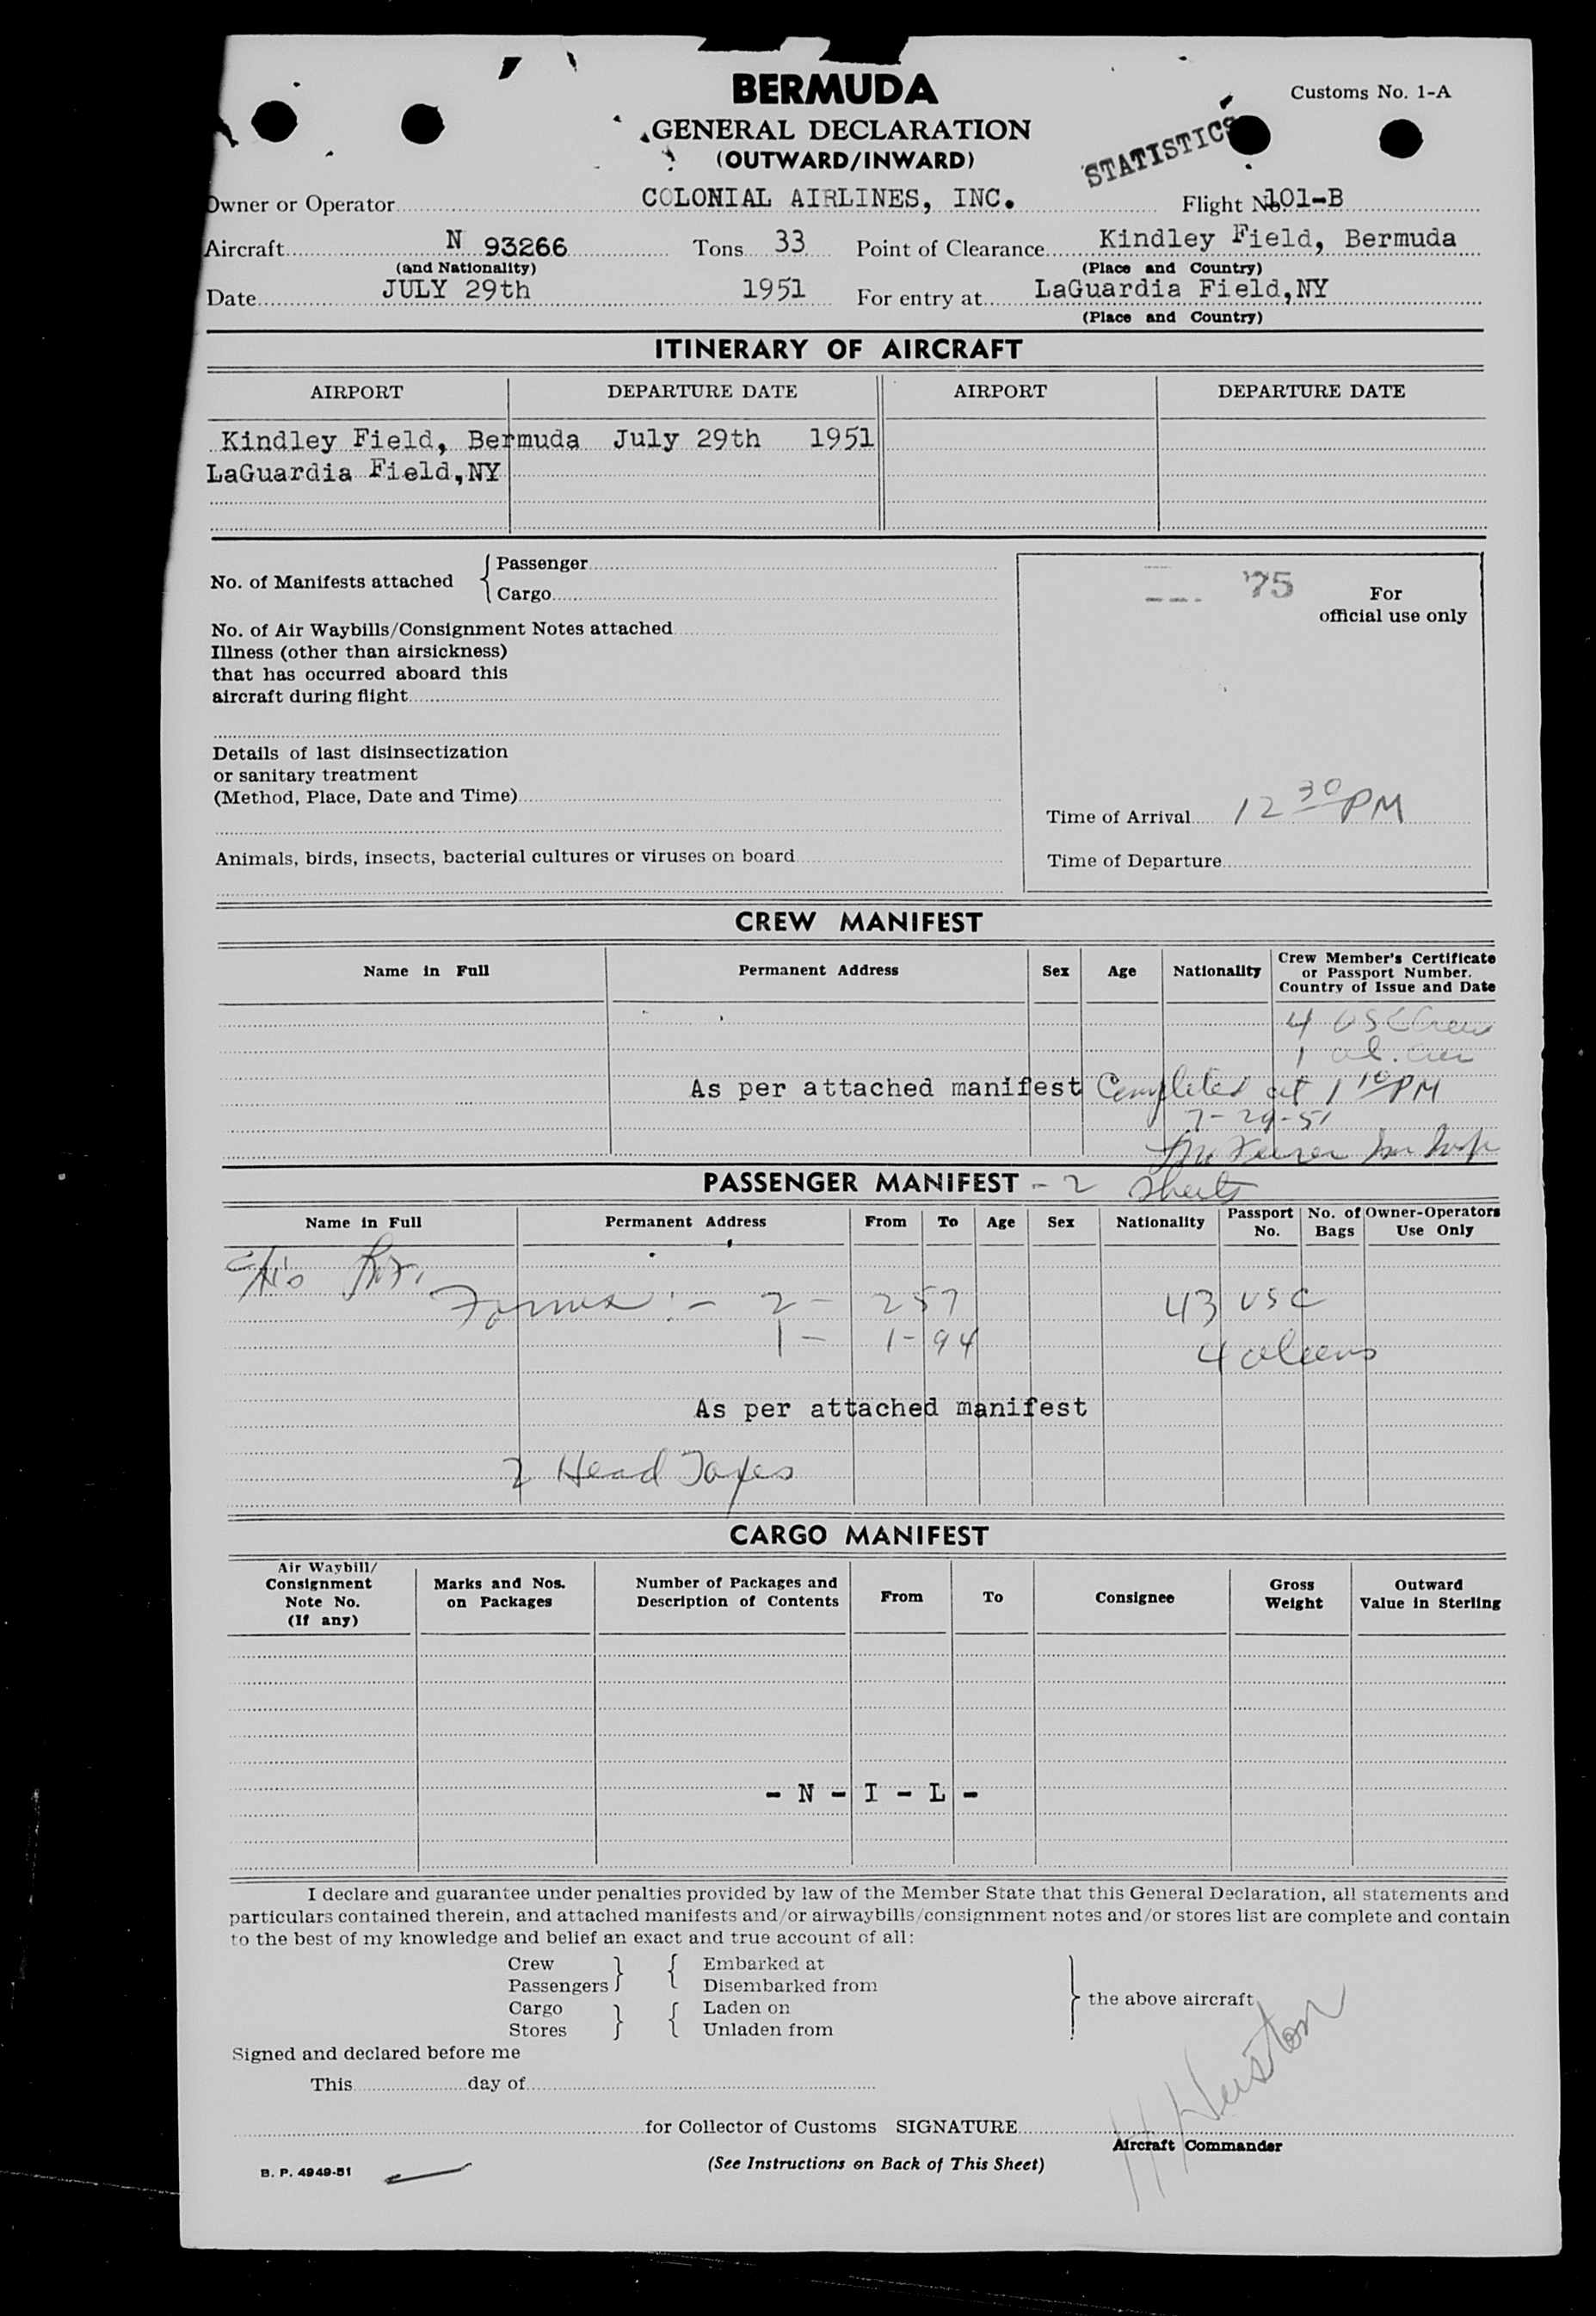 BERMUDA
Customs No. 1-A
GENERAL DECLARATION
(OUTWARD/INWARD)
STATISTICS
Owner or Operator COLONIAL AIRLINES, INC. Flight No. 101-B
Aircraft N 93266 Tons 33 Point of Clearance Kindley Field, Bermuda
(and Nationality) (Place and Country)
Date JULY 29th 1951 For entry at LaGuardia Field,NY
(Place and Country)
ITINERARY OF AIRCRAFT
AIRPORT DEPARTURE DATE AIRPORT DEPARTURE DATE
Kindley Field, Bermuda July 29th 1951
LaGuardia Field,NY
No. of Manifests attached { Passenger
Cargo
'75 For
official use only
No. of Air Waybills/Consignment Notes attached
Illness (other than airsickness)
that has occurred aboard this
aircraft during flight
Details of last disinsectization
or sanitary treatment
(Method, Place, Date and Time)
Time of Arrival 12 30 PM
Animals, birds, insects, bacterial cultures or viruses on board
Time of Departure
CREW MANIFEST
Name in Full Permanent Address Sex Age Nationality Crew Member's Certificate
or Passport Number.
Country of Issue and Date
4 USC Crew
1 al.
As per attached manifest Completed at 1 10 PM
7-29-51
PASSENGER MANIFEST - 2 Sheets
Name in Full Permanent Address From To Age Sex Nationality Passport No. No. of Bags Owner-Operators Use Only
Forms :- 2 - 257 43 USC
1 - 1-94 4 aliens
As per attached manifest
2 Head Taxes
CARGO MANIFEST
Air Waybill/
Consignment
Note No.
(If any)
Marks and Nos.
on Packages
Number of Packages and
Description of Contents
From To Consignee
Gross
Weight
Outward
Value in Sterling
- N - I - L -
I declare and guarantee under penalties provided by law of the Member State that this General Declaration, all statements and
particulars contained therein, and attached manifests and/or airwaybills/consignment notes and/or stores list are complete and contain
to the best of my knowledge and belief an exact and true account of all:
Crew } { Embarked at
Passengers Disembarked from
the above aircraft
Cargo } { Laden on
Stores Unladen from
Signed and declared before me
This day of
H Huston
for Collector of Customs SIGNATURE
Aircraft Commander
B. P. 4949-51
(See Instructions on Back of This Sheet)